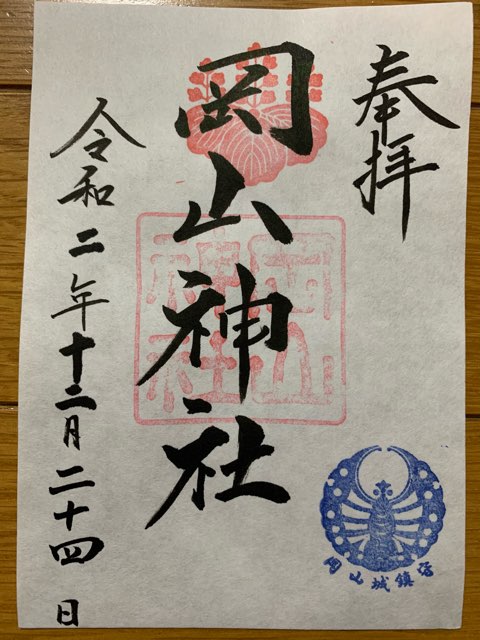 奉拝
岡山神社
岡山神社
令和二年十二月二十四日
岡山城鎮守